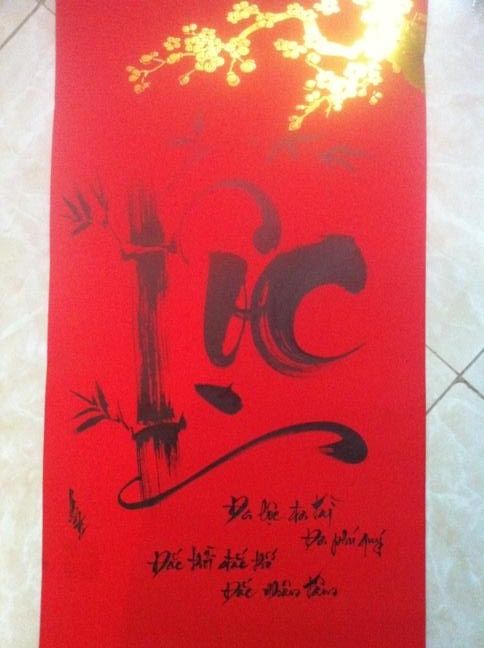 Lộc
Đa lộc đa tài
Đa phú quý
Đắc thời đắc thế
Đắc nhân tâm